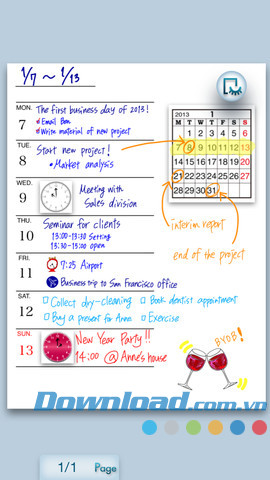 1/7 ~ 1/13
MON.
7
The first business day of 2013!
Email Ben
Write material of new project
TUE.
8
Start new project!
• Market analysis
WED.
9
Meeting with
Sales division
THU.
10
Seminar for clients
13:00-13:30 Setting
13:30-15:00 Open
FRI.
11
7:25 Airport
Business trip to San Francisco office
SAT.
12
Collect dry-cleaning
Book dentist appointment
Buy a present for Anne
Exercise
SUN.
13
New Year Party!!
14:00 @Anne's house
2013 1
M T W T F S S
1 2 3 4 5 6
7 8 9 10 11 12 13
14 15 16 17 18 19 20
21 22 23 24 25 26 27
28 29 30 31
interim report
end of the project
BYOB!
Download.com.vn
1/1 Page